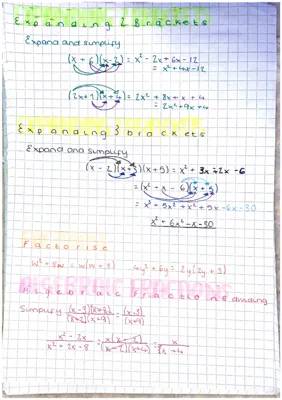 Expanding 2 Brackets
Expand and simplify
(x + 6)(x - 2) = x² - 2x + 6x - 12
= x² + 4x - 12
(2x + 1)(x + 4) = 2x² + 8x + x + 4
= 2x² + 9x + 4
Expanding 3 brackets
Expand and simplify
(x - 2)(x + 3)(x + 5) = x² + 3x - 2x - 6
= (x² + x - 6)(x + 5)
= x³ + 5x² + x² + 5x - 6x - 30
x³ + 6x² - x - 30
Factorise
4y² + 6y = 2y(2y + 3)
Algebraic Fractions
Simplify
x² - 2x
x² - 2x - 8